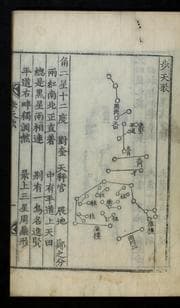 步天歌
南門
庫樓
柱
柱
角二星十二度 對奎 天秤宮 辰地 鄭之分
兩紅南北正直着 中有平道上天田
總是黑星兩相連 別有一烏名進賢
平道右畔獨淵然 最上三星周鼎形